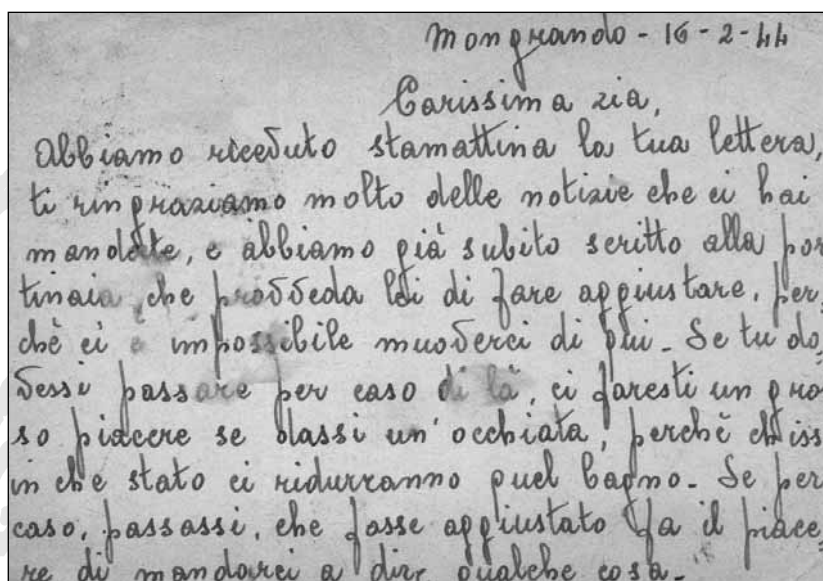 Mongrando - 16-2-44
Carissima zia,
Abbiamo ricevuto stamattina la tua lettera,
ti ringraziamo molto delle notizie che ci hai
mandate, e abbiamo già subito scritto alla por
tinaia, che provveda lei di fare aggiustare, per,
chè ci è impossibile muoverci di qui. Se tu do,
vessi passare per caso di là, ci faresti un gro
so piacere se dassi un'occhiata, perchè chiss
in che stato ci ridurranno quel bagno. Se per
caso, passassi, che fosse aggiustato fa il piace,
re di mandarci a dire qualche cosa.